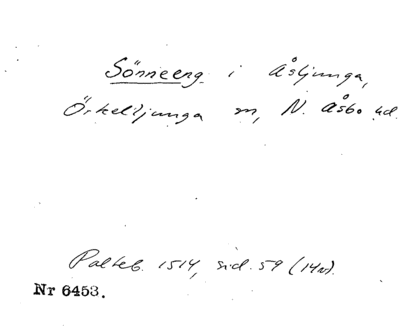 Sönneeng i Åsljunga,
Örkelljunga sn, N. Åsbo hd.
Palteb. 1514, sid. 59 (14).
Nr 6453.